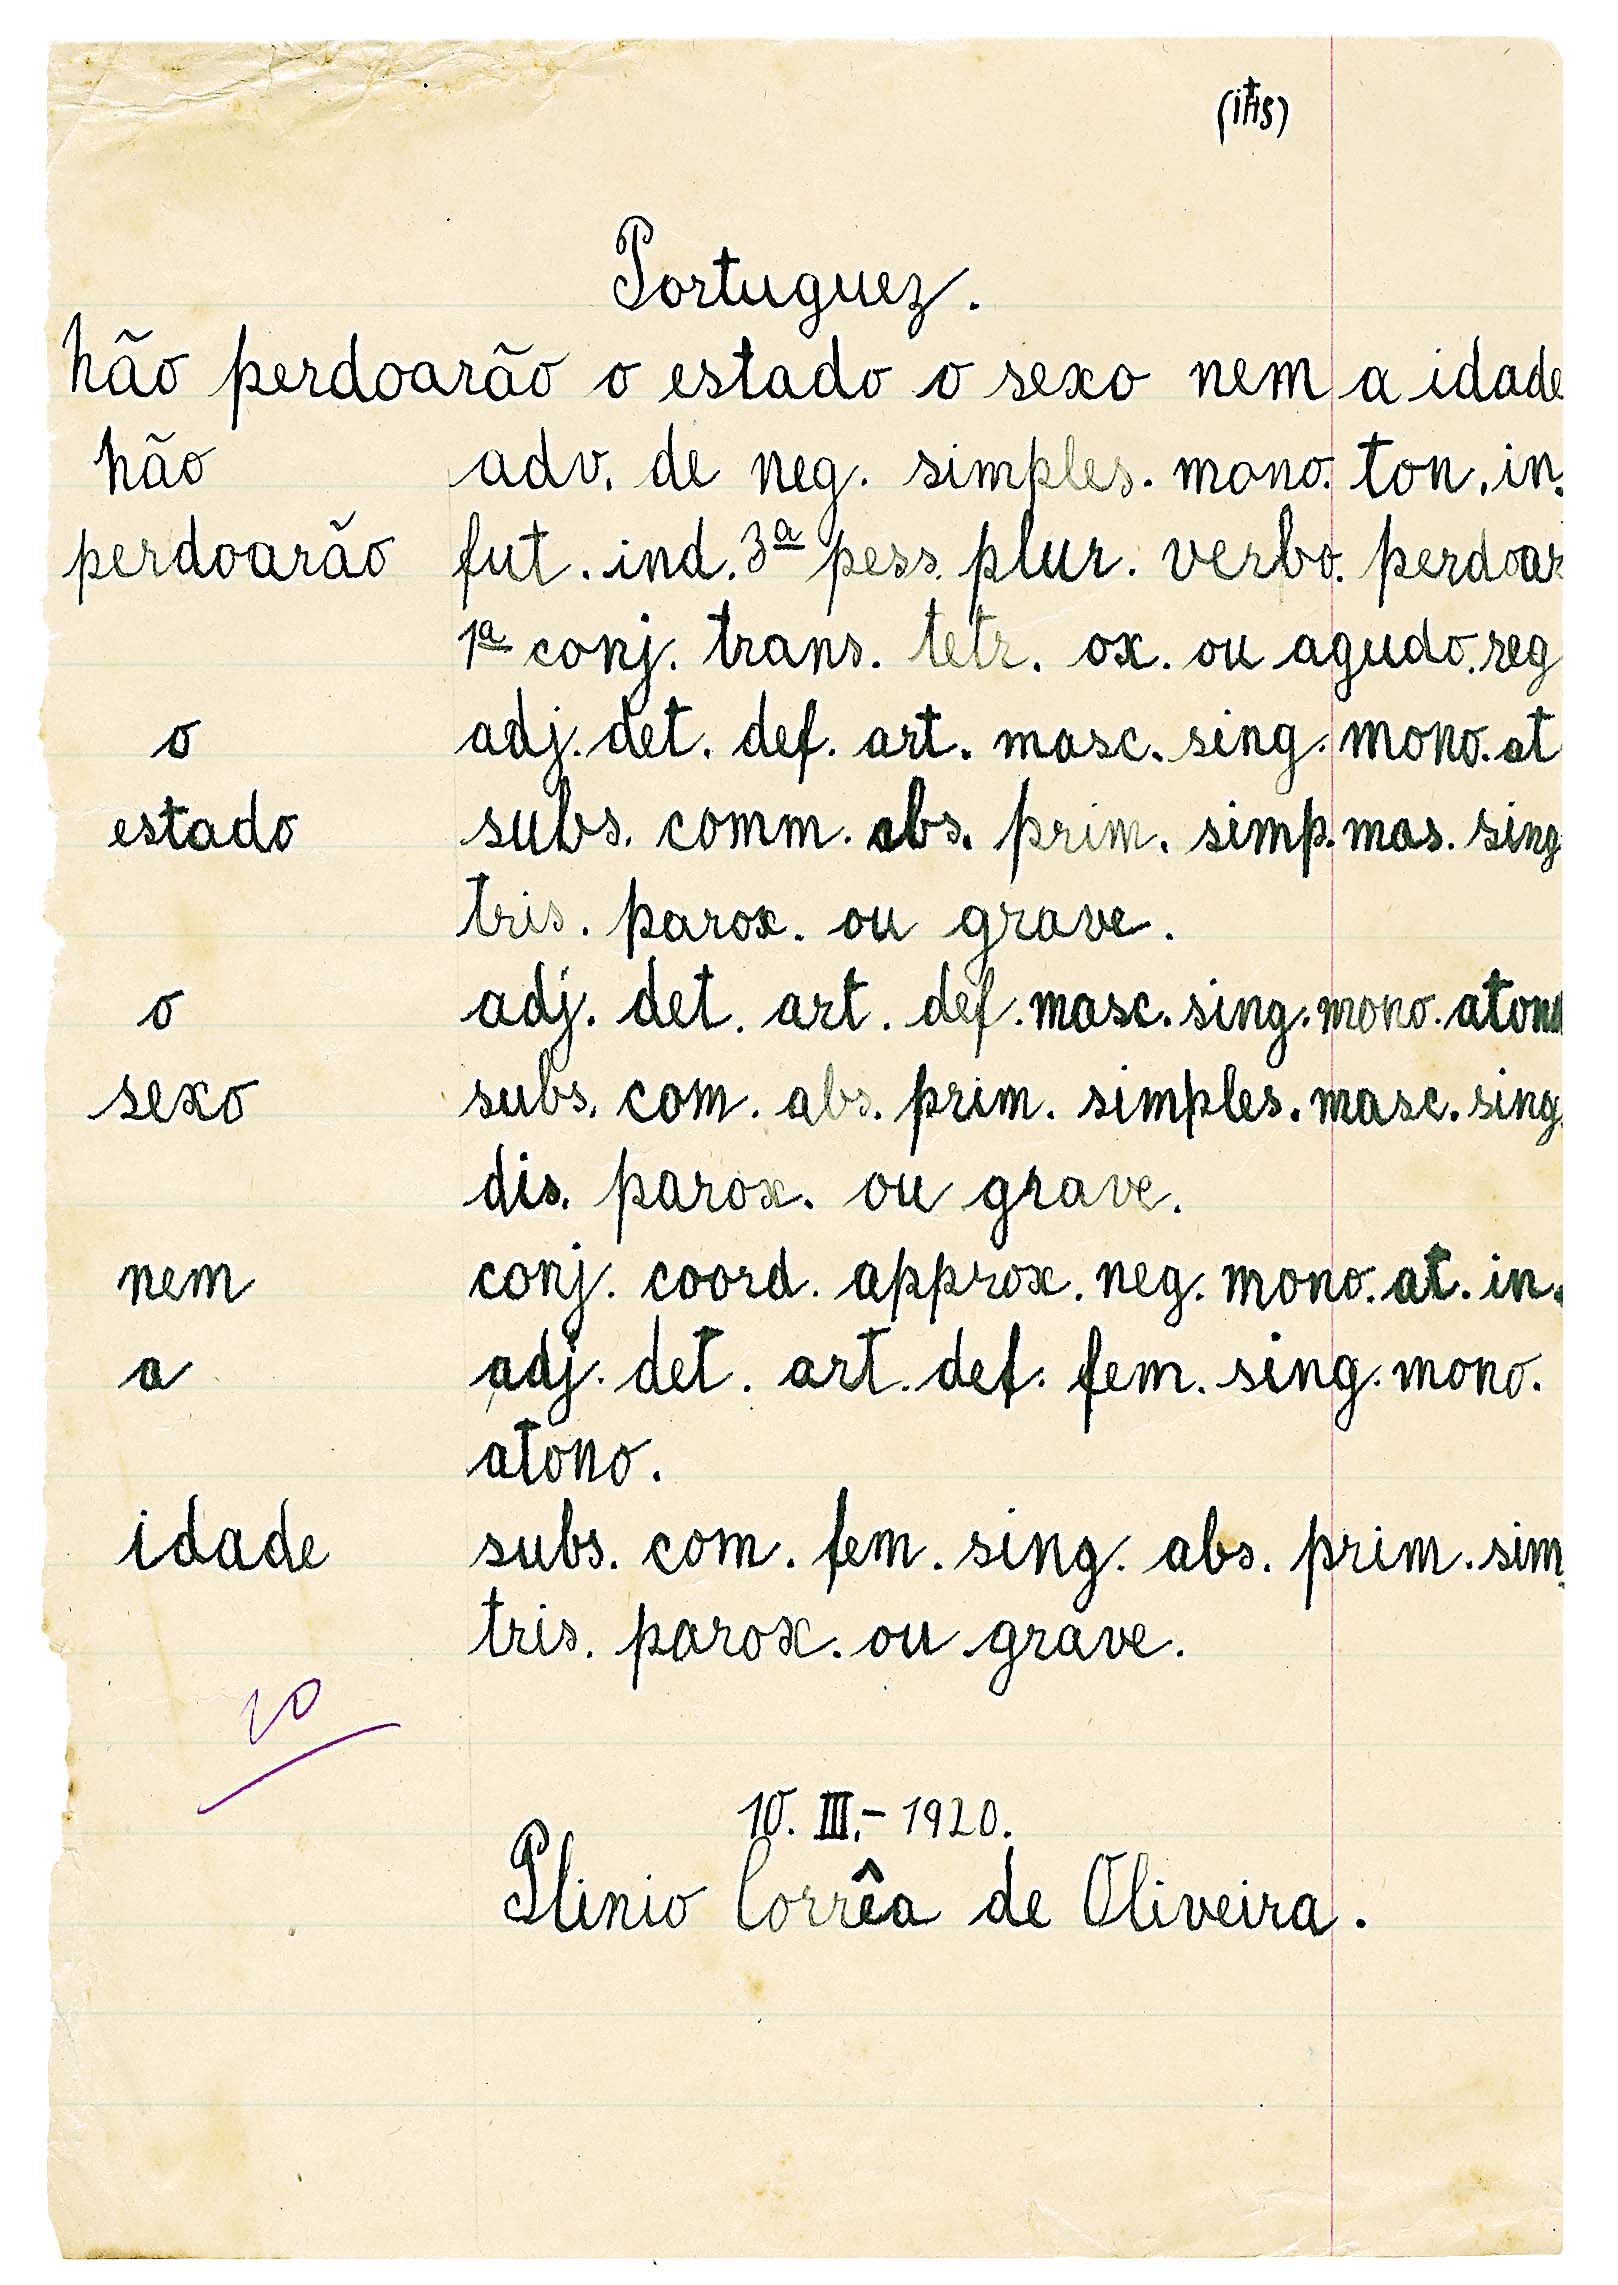 (ihs)
Portuguez.
Não perdoarão o estado o sexo nem a idade
não adv. de neg. simples. mono. ton. in.
perdoarão fut. ind. 3ª pess. plur. verbo. perdoar
1ª conj. trans. tetr. ox. ou agudo. reg
o adj. det. def. art. masc. sing. mono. at
estado subs. comm. abs. prim. simp. mas. sing
tris. parox. ou grave.
o adj. det. art. def. masc. sing. mono. atono
sexo subs. com. abs. prim. simples. masc. sing.
dis. parox. ou grave.
nem conj. coord. approx. neg. mono. at. in.
a adj. det. art. def. fem. sing. mono.
atono.
idade subs. com. fem. sing. abs. prim. sim.
tris. parox. ou grave.
10
10. III.- 1920.
Plinio Corrêa de Oliveira.